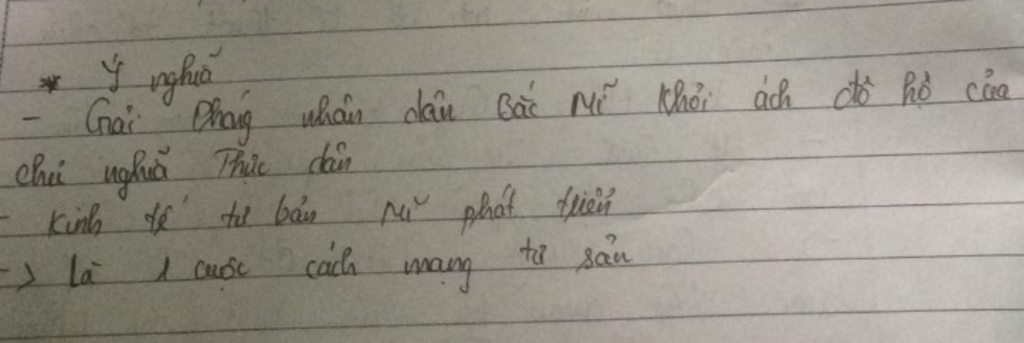 * Ý nghĩa
- Giải phóng nhân dân Bắc Mĩ khỏi ách đô hộ của
chủ nghĩa Thực dân
- Kinh tế tư bản Mĩ phát triển
-> Là 1 cuộc cách mạng tư sản